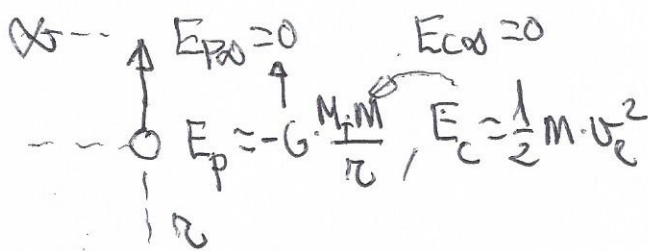 ∞ E_{P∞} = 0 E_{C∞} = 0
E_p = -G · \frac{M_T M}{r} , E_c = \frac{1}{2} M · v_e^2
r